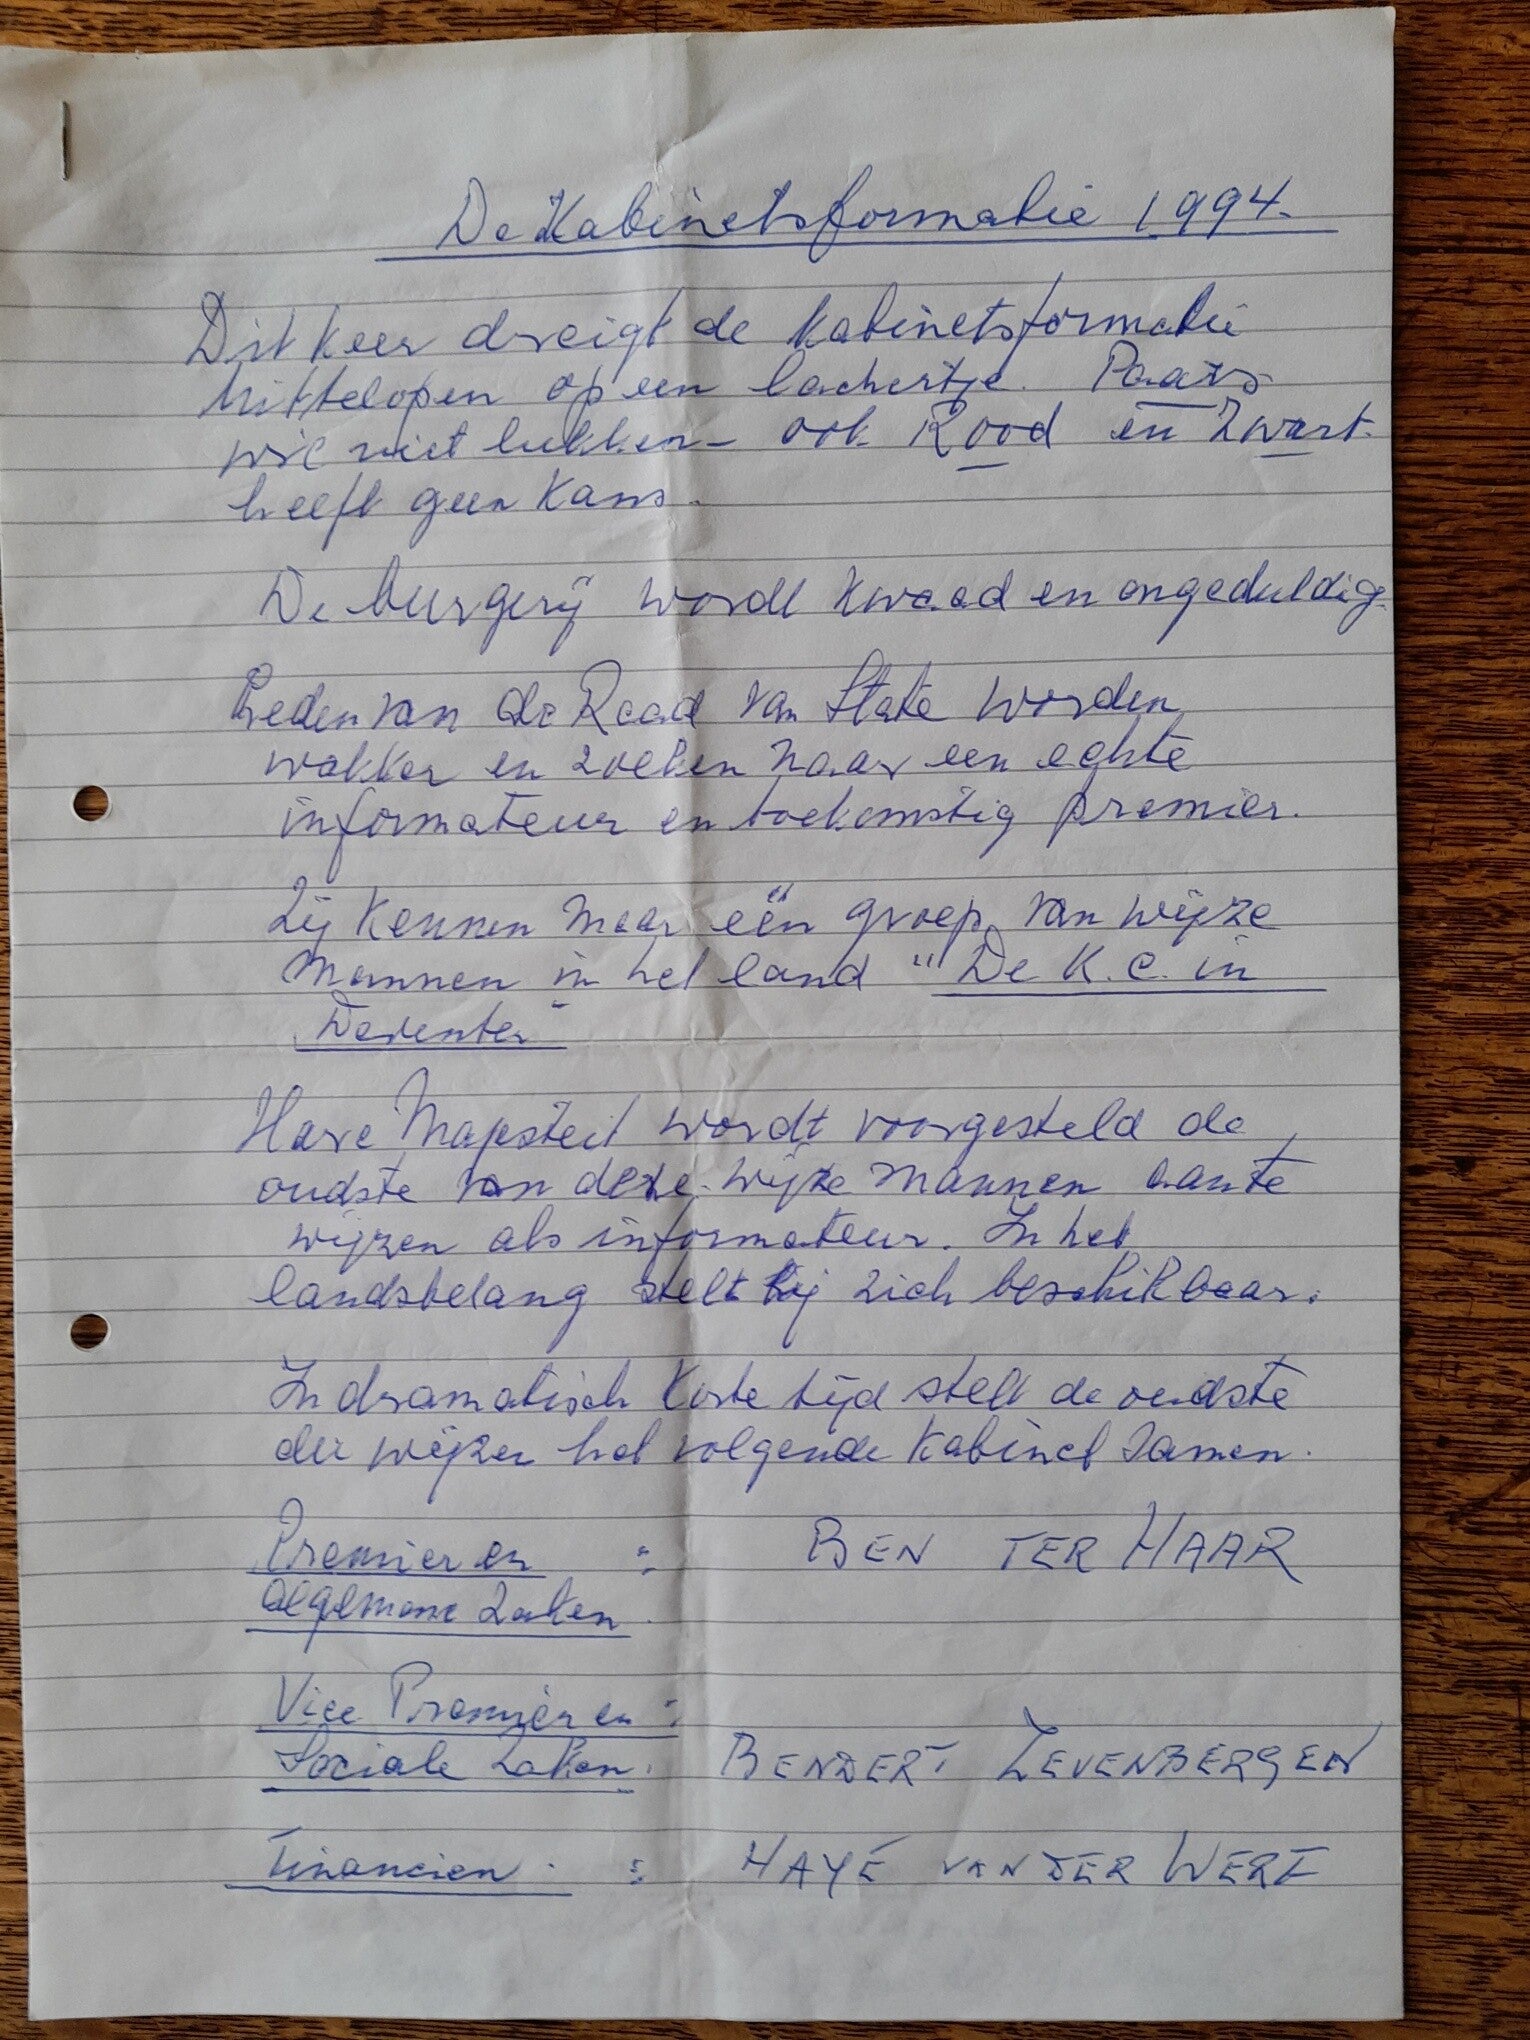 De Kabinetsformatie 1994.
Dit keer dreigt de kabinetsformatie
uittelopen op een lachertje. Paars
wil niet lukken - ook Rood en Zwart.
heeft geen kans.
De burgerij wordt kwaad en ongeduldig.
Leden van de Raad van State worden
wakker en zoeken naar een echte
informateur en toekomstig premier.
Zij kennen maar één groep van wijze
mannen in het land "De K.C. in
Deventer"
Hare Majesteit wordt voorgesteld de
oudste van deze wijze mannen aan te
wijzen als informateur. In het
landsbelang stelt hij zich beschikbaar.
In dramatisch korte tijd stelt de oudste
der wijzen het volgende kabinet samen.
Premier en : BEN TER HAAR
algemene Zaken.
Vice Premier en :
Sociale Zaken. BENDERT ZEVENBERGEN
Financien : HAYÉ VAN DER WERF